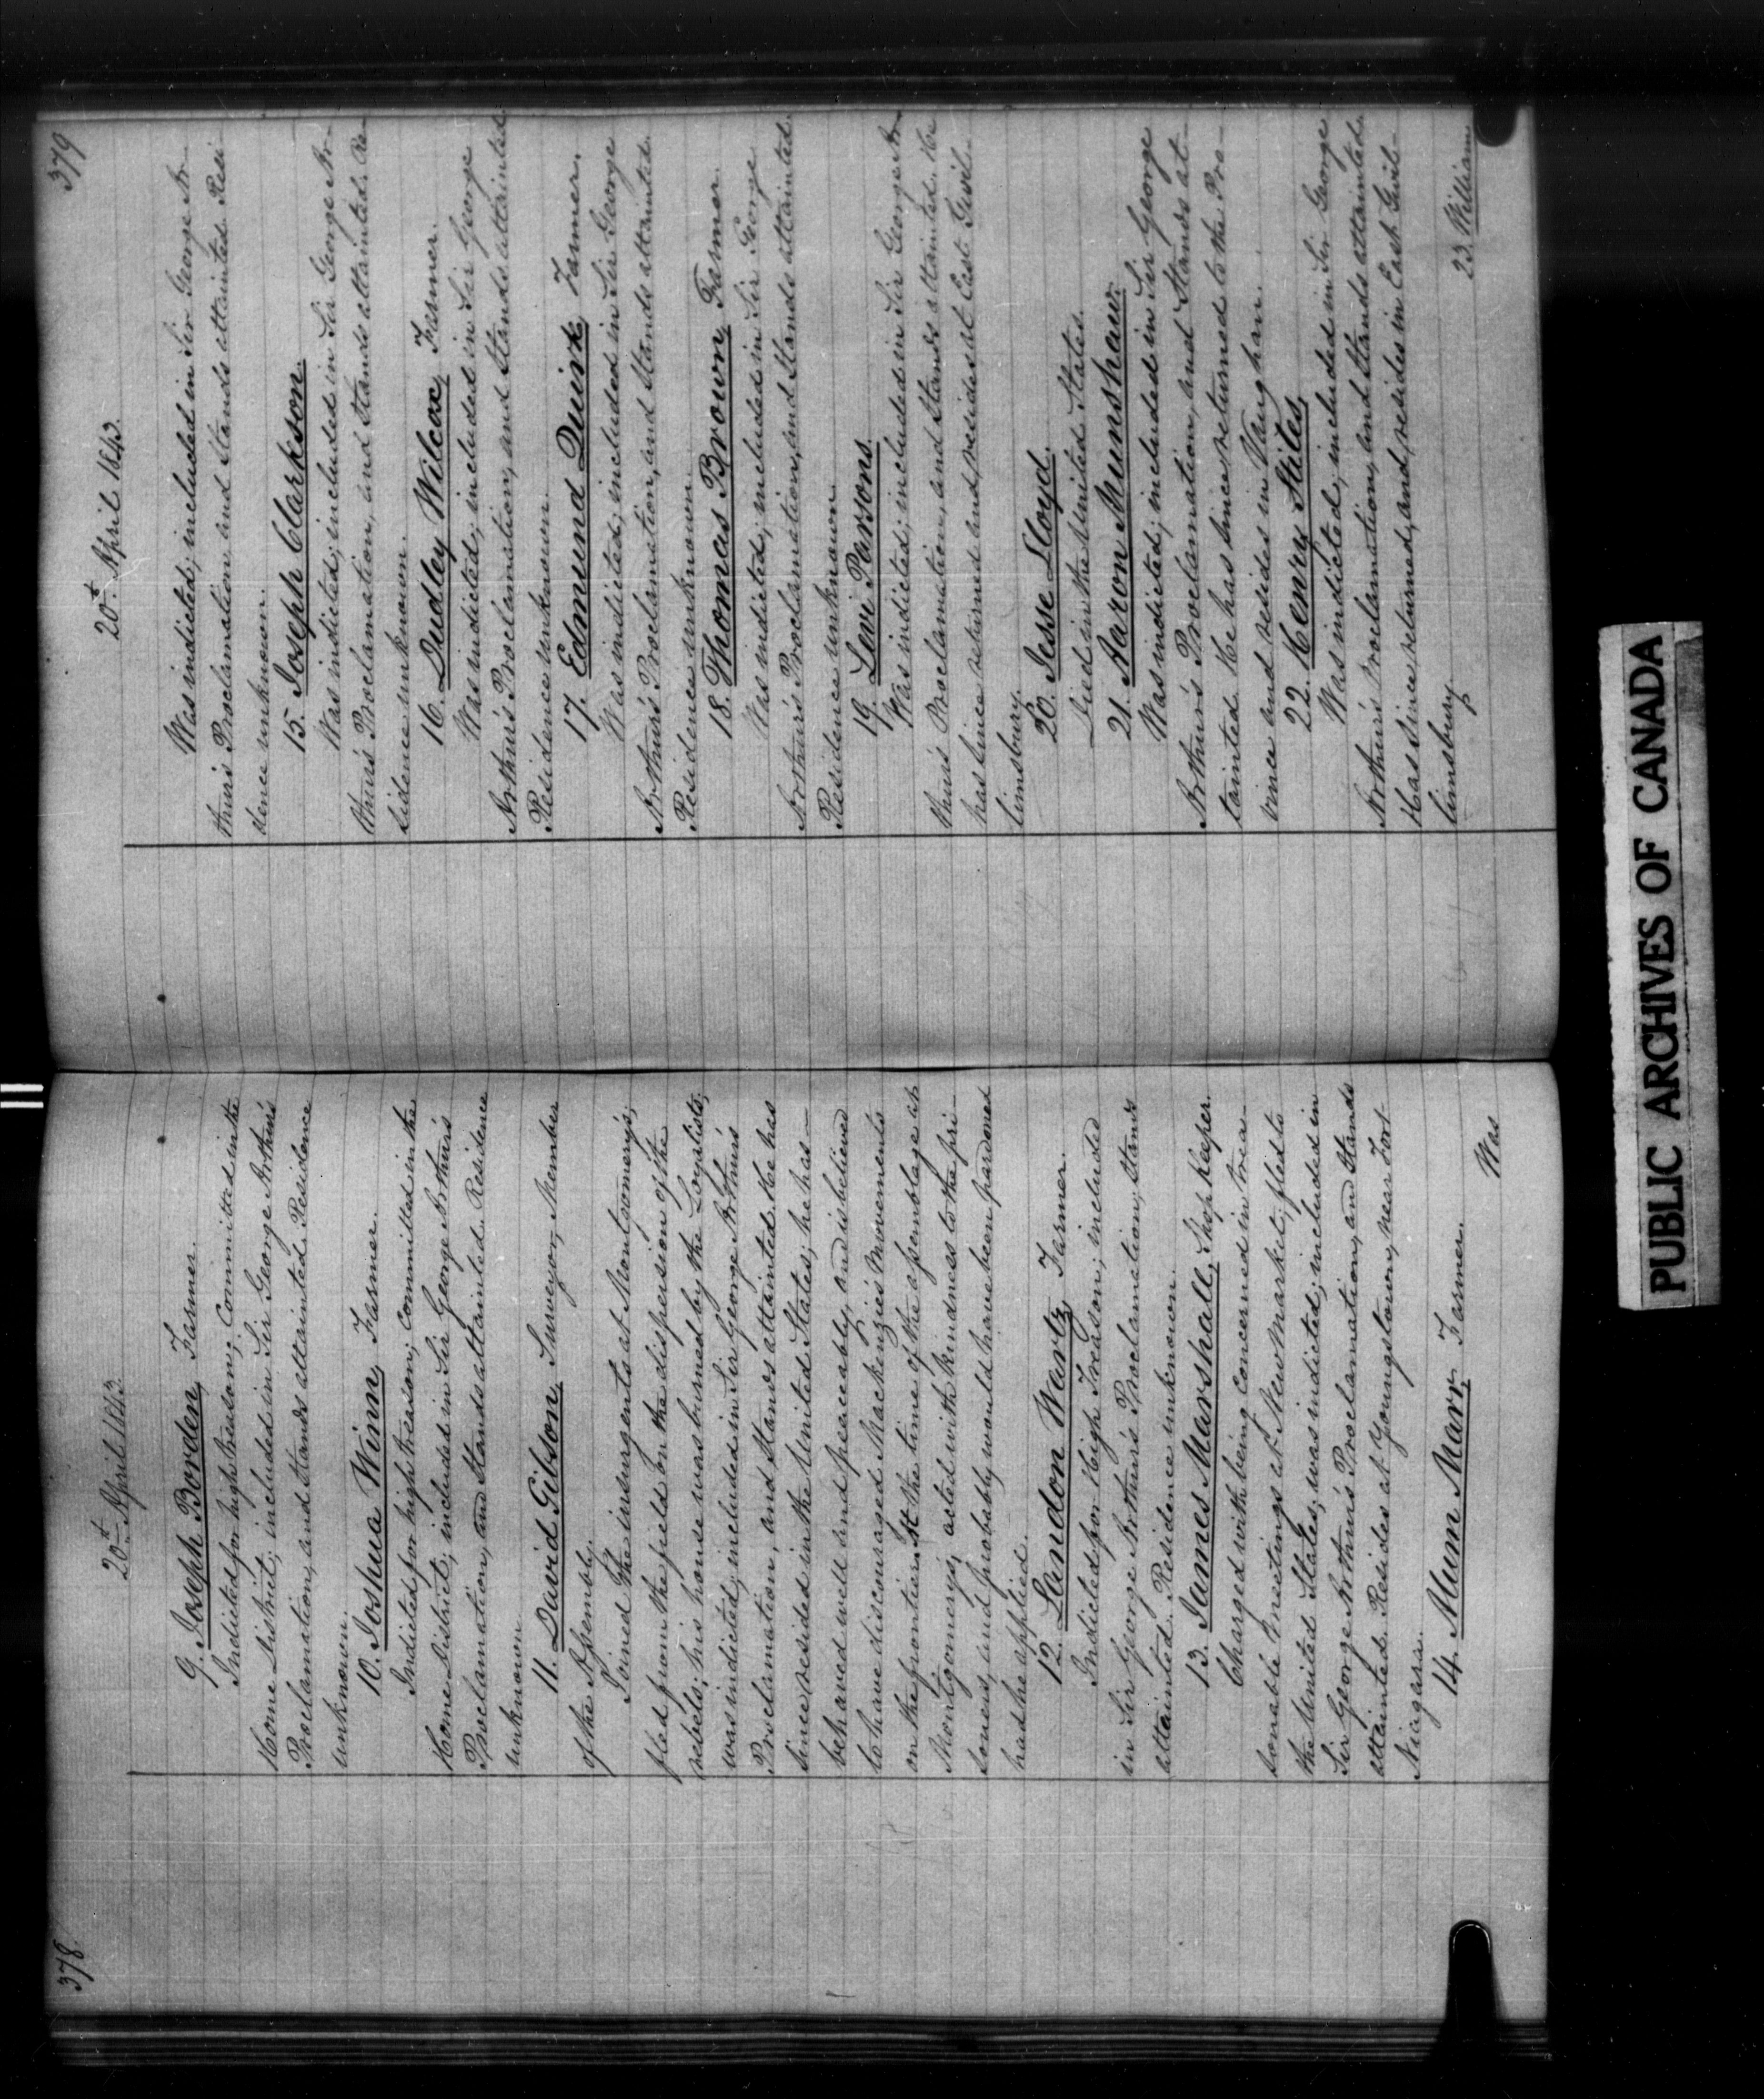 378.
20th April 1843.
9. Joseph Borden, Farmer.
Indicted for high treason; Committed in the
Home District; included in Sir George Arthur's
Proclamation, and Stands attainted. Residence
unknown.
10. Joshua Winn, Farmer.
Indicted for high treason; committed in the
Home District; included in Sir George Arthur's
Proclamation, and Stands attainted. Residence
unknown.
11. David Gibson, Surveyor, Member
of the Assembly.
Joined the insurgents at Montgomery's;
fled from the field on the dispersion of the
rebels; his house was burned by the Loyalists;
was indicted; included in Sir George Arthur's
Proclamation, and Stands attainted. He has
since resided in the United States; he has
behaved well and peaceably, and is believed
to have discouraged Mackenzie's movements
on the frontier. At the time of the assemblage at
Montgomery's, acted with kindness to the pri-
soners, and probably would have been pardoned
had he applied.
12. Landon Wartz, Farmer.
Indicted for High Treason; included
in Sir George Arthur's Proclamation; Stands
attainted. Residence unknown.
13. James Marshall, Shop Keeper.
Charged with being concerned in trea-
sonable Meetings at New Market; fled to
the United States; was indicted; included in
Sir George Arthur's Proclamation, and Stands
attainted. Resides at Youngstown, near Fort
Niagara.
14. Alum Marr, Farmer.
Was
379
20th April 1843.
Was indicted; included in Sir George Ar-
thur's Proclamation and Stands attainted. Resi-
dence unknown.
15. Joseph Clarkson.
Was indicted; included in Sir George Ar-
thur's Proclamation, and Stands attainted. Re-
sidence unknown.
16. Dudley Wilcox, Farmer.
Was indicted; included in Sir George
Arthur's Proclamation, and Stands attainted
Residence unknown.
17. Edmund Quirk, Farmer.
Was indicted; included in Sir George
Arthur's Proclamation, and Stands attainted.
Residence unknown.
18. Thomas Brown, Farmer.
Was indicted; included in Sir George
Arthur's Proclamation, and Stands attainted.
Residence unknown.
19. Levi Parsons.
Was indicted; included in Sir George Ar-
thur's Proclamation, and Stands attainted. He
has since returned and resides at East Gwil-
limsbury.
20. Jesse Lloyd.
Died in the United States.
21. Aaron Munshaw.
Was indicted; included in Sir George
Arthur's Proclamation, and Stands at-
tainted. He has since returned to the Pro-
vince and resides in Vaughan.
22. Henry Stiles,
Was indicted; included in Sir George
Arthur's Proclamation, and Stands attainted.
Has since returned, and resides in East Gwil-
limsbury.
23. William
PUBLIC ARCHIVES OF CANADA